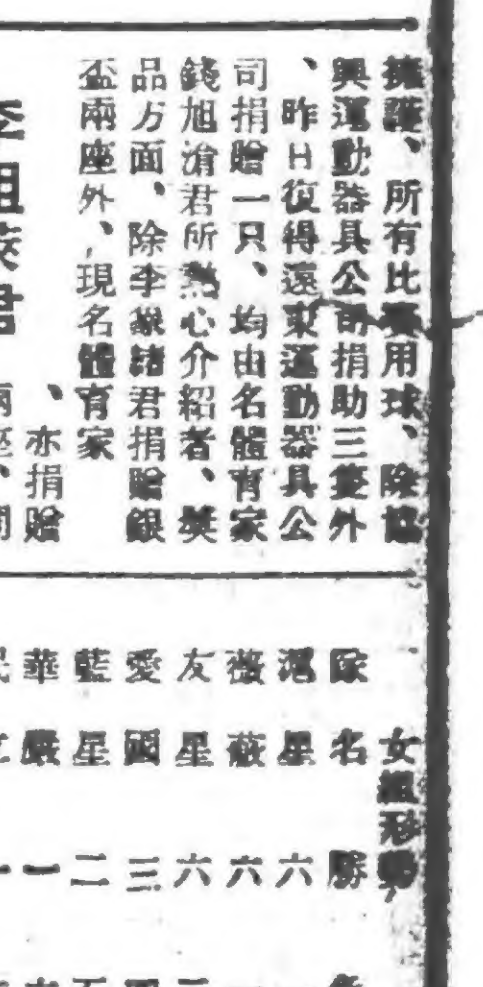 擁護、所有比賽用球、除協
興運動器具公司捐助三隻外
、昨日復得遠東運動器具公
司捐贈一只、均由名體育家
錢旭滄君所熱心介紹者、獎
品方面、除李君捐贈銀
盃兩座外、現名體育家
李祖萊君
、亦捐贈
女組形勢
隊名 勝
滬星 六
薇薇 六
友星 六
愛國 三
藍星 二
華嚴 一